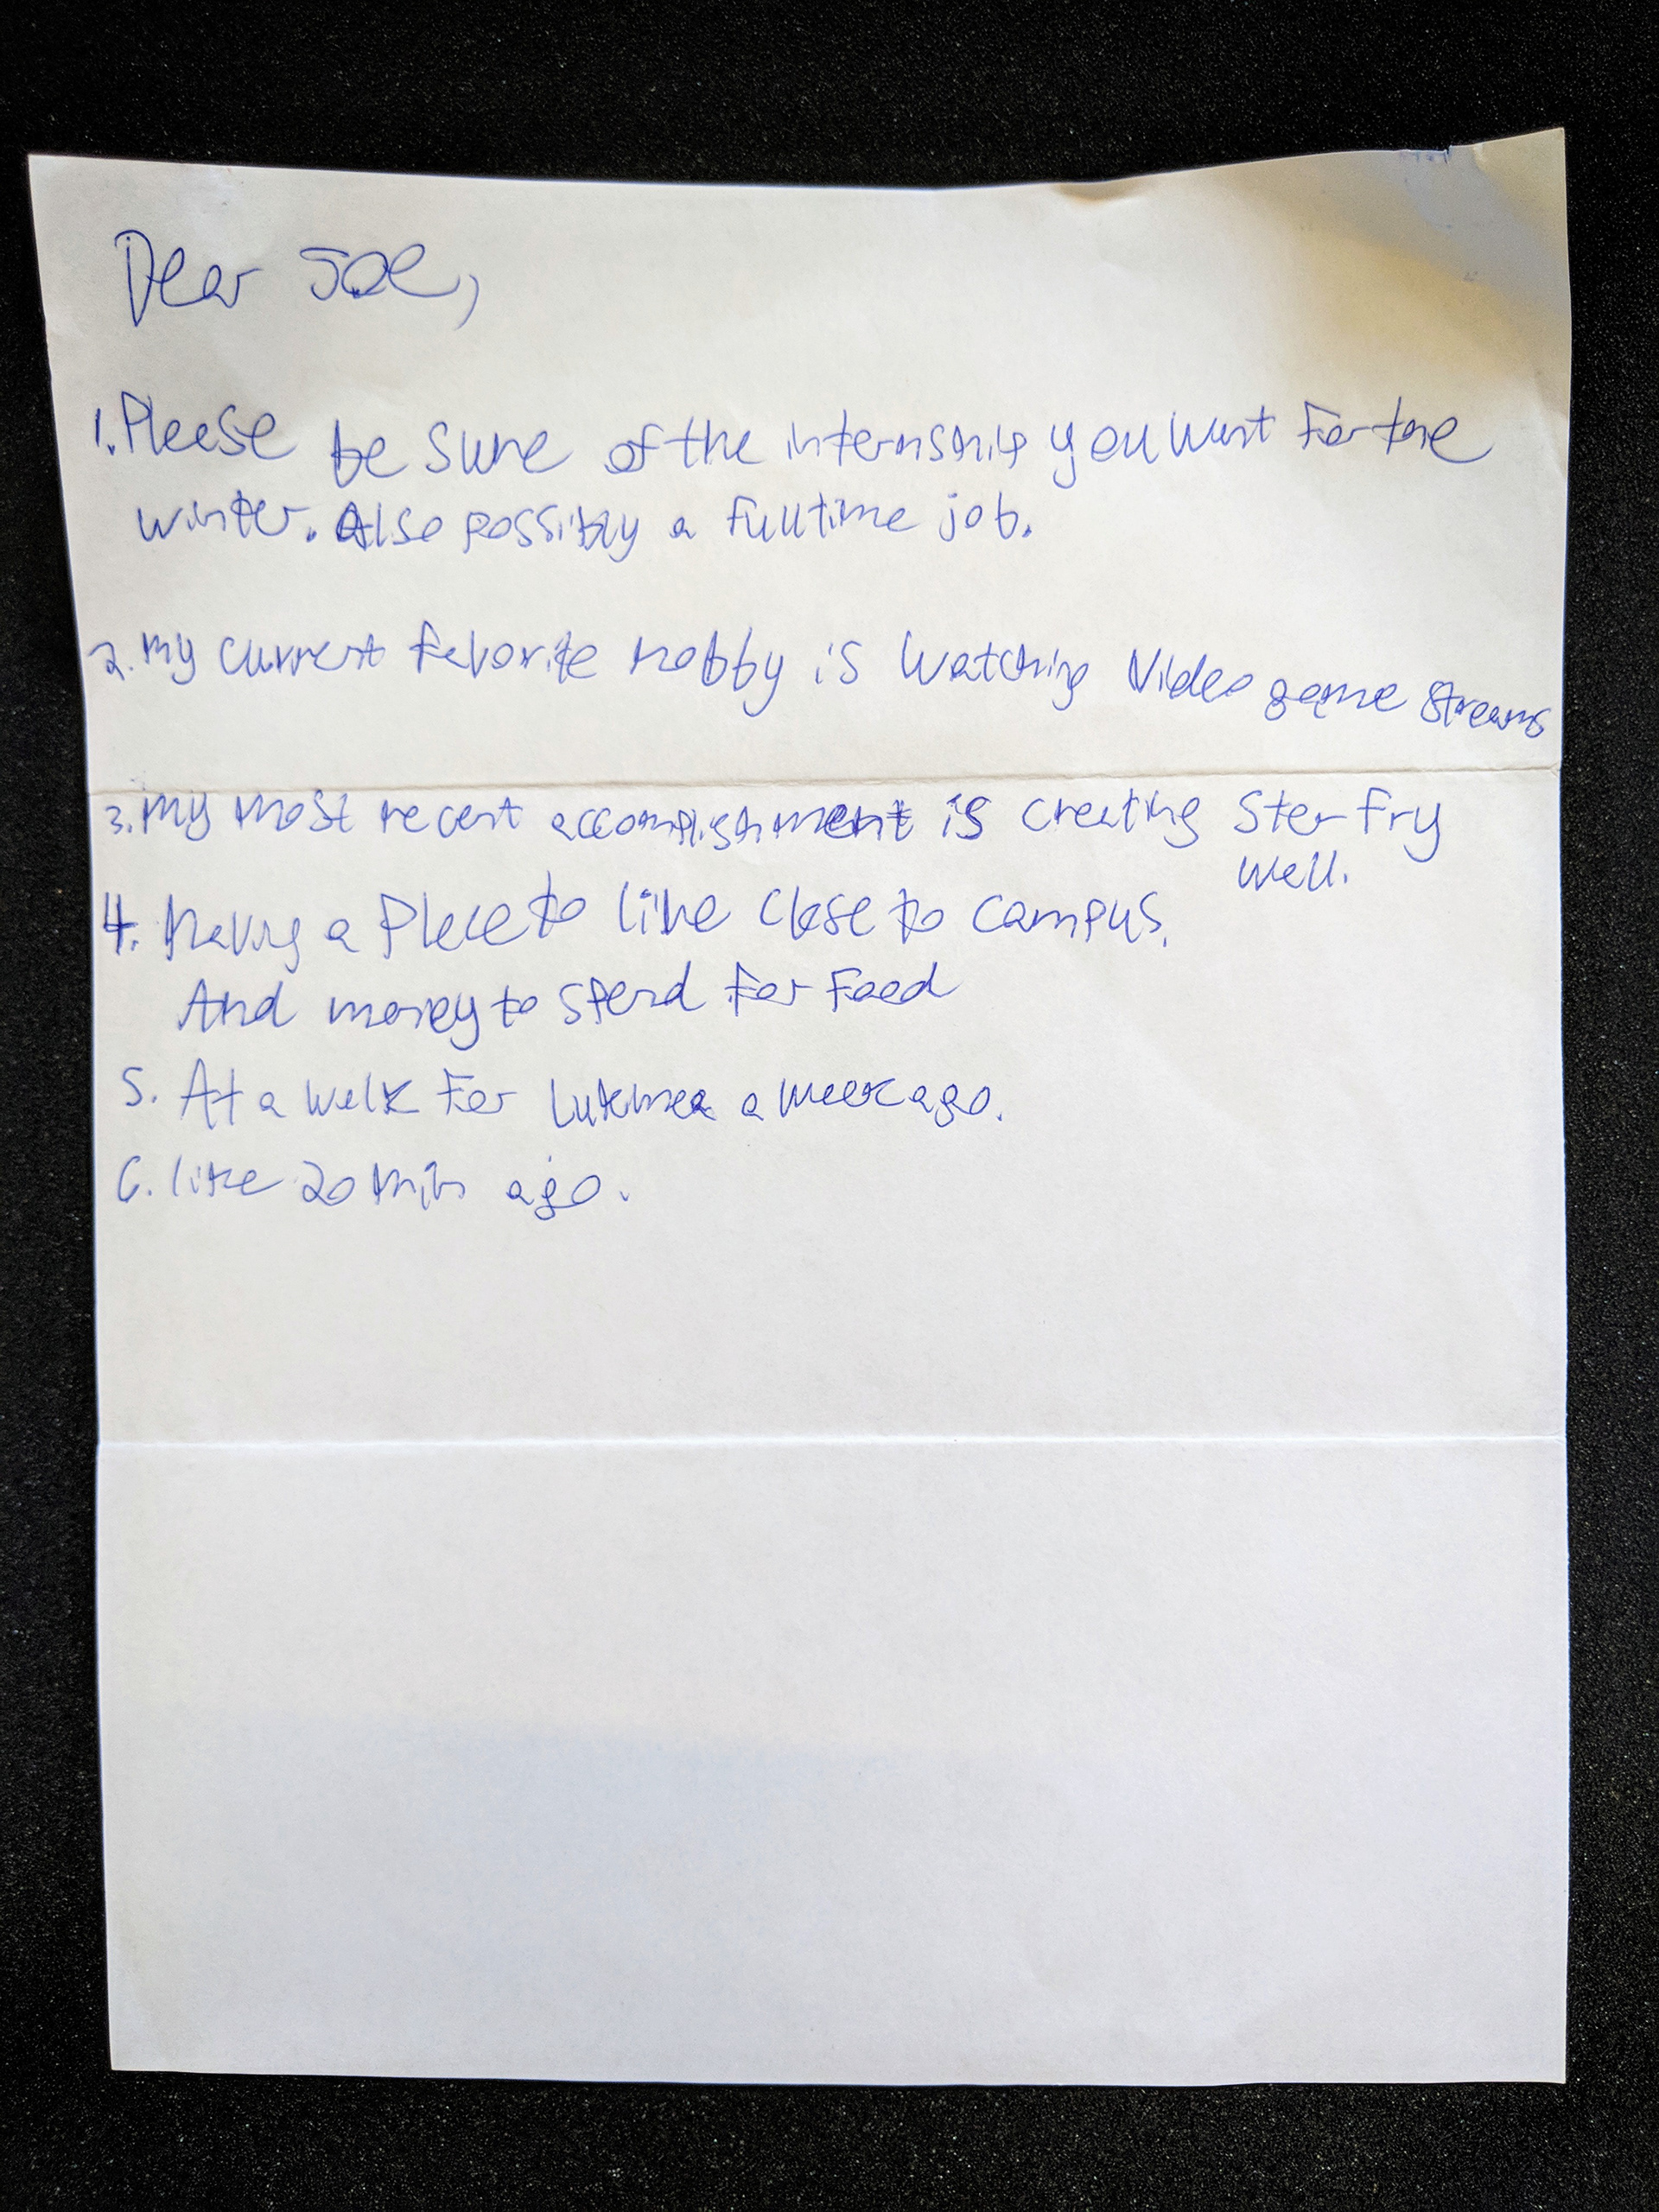 Dear Joe,
1. Please be sure of the internship you want for the
winter. Also possibly a fulltime job.
2. my current favorite hobby is watching Video game streams
3. my most recent accomplishment is creating Ster fry
well.
4. Having a place to live close to campus.
And money to spend for food
5. At a walk for Lukemea a week ago.
6. like 20 min ago.